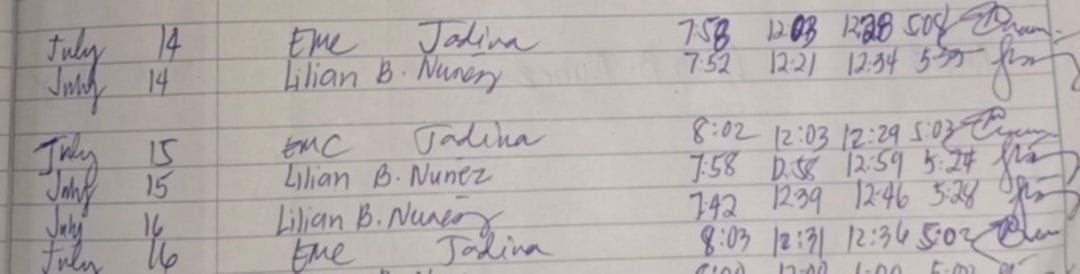 July 14 Eme Jadina 7:58 12:03 12:28 5:08
July 14 Lilian B. Nunez 7:52 12:21 12:34 5:35
July 15 Eme Jadina 8:02 12:03 12:29 5:03
July 15 Lilian B. Nunez 7:58 12:58 12:59 5:24
July 16 Lilian B. Nunez 7:42 12:39 12:46 5:28
July 16 Eme Jadina 8:03 12:31 12:36 5:02